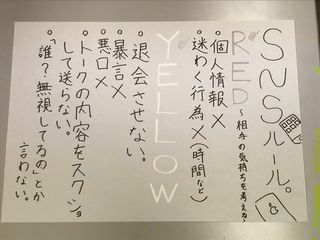 SNSルール。
RED～相手の気持ちを考える～
• 個人情報×
• 迷わく行為×(時間など)
YELLOW
• 退会させない。
• 暴言×
• 悪口×
• トークの内容をスクショ
して送らない。
• 「誰?無視してるの」とか
言わない。